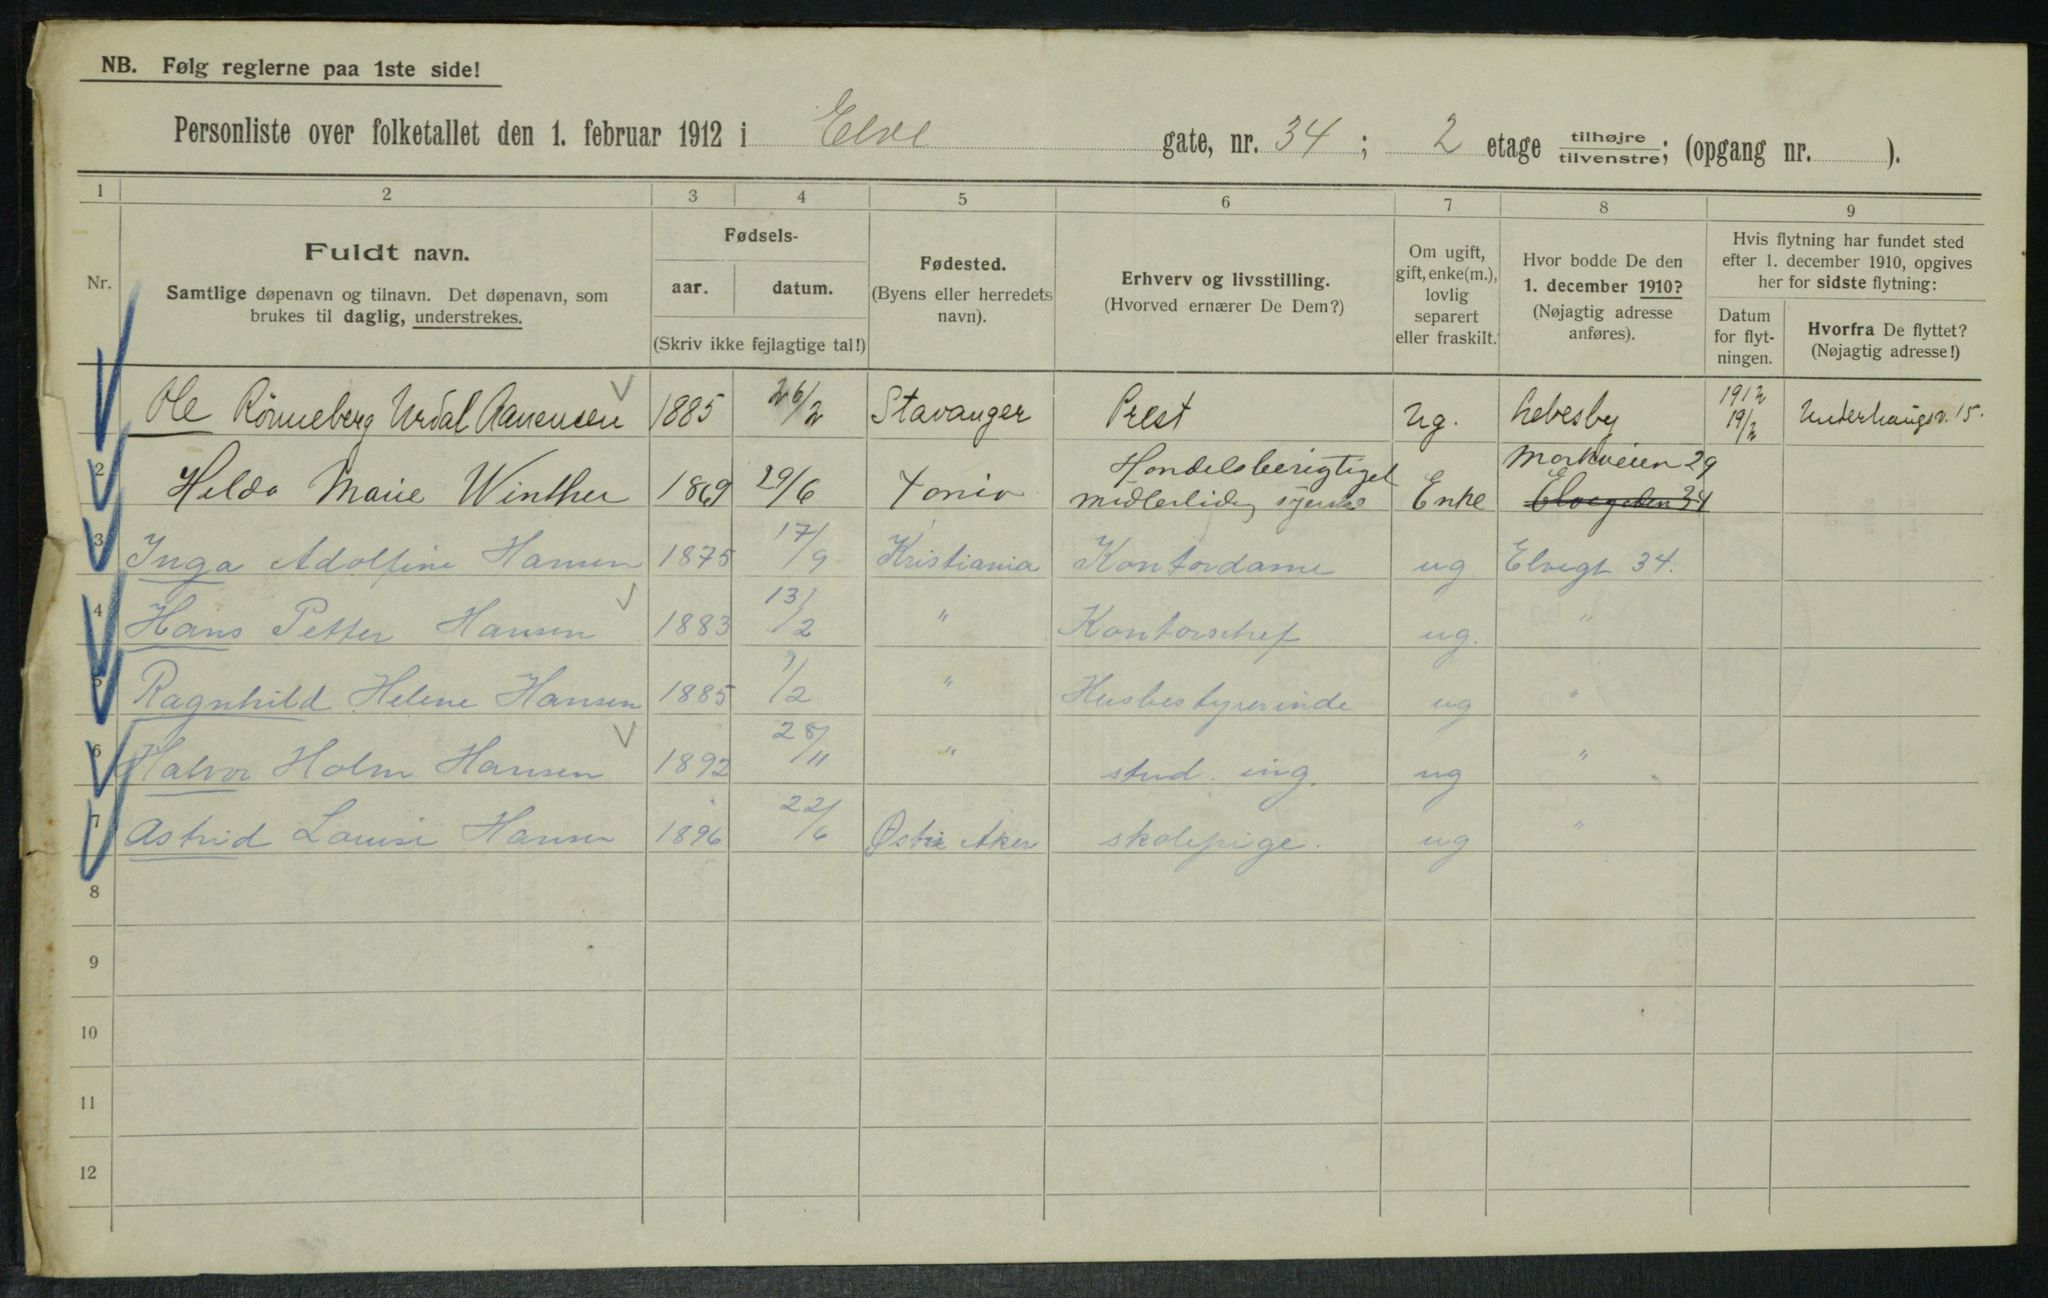 NB. Følg reglerne paa 1ste side!
Personliste over folketallet den 1. februar 1912 i Elve gate, nr. 34; 2 etage tilhøjre/tilvenstre; (opgang nr. ).
1 2 3 4 5 6 7 8 9
Nr.
Fuldt navn.
Samtlige døpenavn og tilnavn. Det døpenavn, som
brukes til daglig, understrekes.
Fødsels-
aar. datum.
(Skriv ikke fejlagtige tal!)
Fødested.
(Byens eller herredets
navn).
Erhverv og livsstilling.
(Hvorved ernærer De Dem?)
Om ugift,
gift, enke(m.),
lovlig
separert
eller fraskilt.
Hvor bodde De den
1. december 1910?
(Nøjagtig adresse
anføres).
Hvis flytning har fundet sted
efter 1. december 1910, opgives
her for sidste flytning:
Datum
for flyt-
ningen.
Hvorfra De flyttet?
(Nøjagtig adresse!)
Ole Rønneberg Urdal Aanensen 1885 26/2 Stavanger Prest Ug. Lebesby 1912 19/2 Underhaugsv. 15.
2 Helda Marie Winther 1869 29/6 Handelsberigtiget Enke Markveien 29
midlertidig Elvegaden 34
3 Inga Adolfine Hansen 1875 17/9 Kristiania Kontordame ug Elvegt 34.
4 Hans Petter Hansen 1883 13/2 " Kontorschef ug. "
5 Ragnhild Helene Hansen 1885 1/2 " Husbestyrerinde ug "
6 Halvor Holm Hansen 1892 28/11 " stud. ing. ug "
7 Astrid Louise Hansen 1896 22/6 Østre Aker skolepige. ug "
8
9
10
11
12